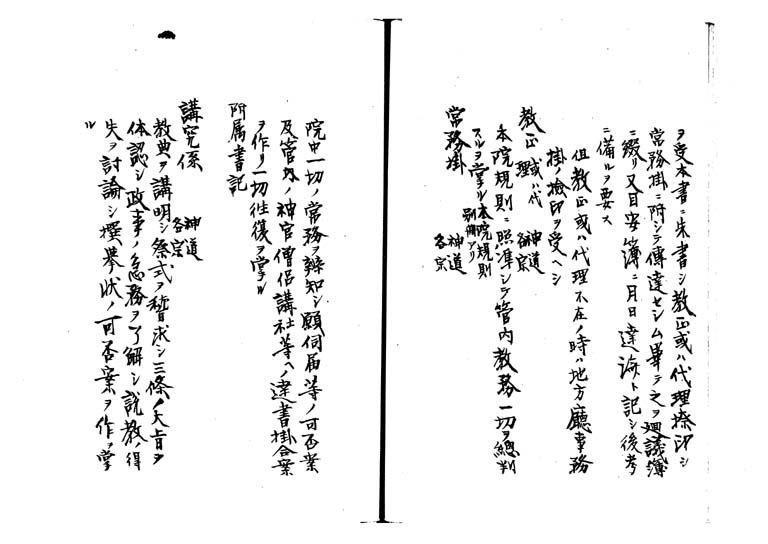 ヲ受本書ニ朱書シ教正或ハ代理撿印シ
常務掛ニ附シテ傳達セシム畢テ之ヲ廻議簿
ニ綴リ又目安簿ニ月日達済ト記シ後考
ニ備ルヲ要ス
但教正或ハ代理不在ノ時ハ地方廳事務
掛ノ撿印ヲ受ヘシ
教正或ハ代理 神道各宗
本院規則ニ照準シテ管内教務一切ヲ總判
スルヲ掌ル本院規則別冊アリ
常務掛 神道各宗
院中一切ノ常務ヲ辨知シ願伺届等ノ可否案
及管内ノ神官僧侶講社等ヘノ達書掛合案
ヲ作リ一切往復ヲ掌ル
附属書記
講究係 神道各宗
教典ヲ講明シ祭式ヲ講求シ三條ノ大旨ヲ
体認シ政事ノ急務ヲ了解シ説教ノ得
失ヲ討論シ撰挙状ノ可否案ヲ作ヲ掌
ル